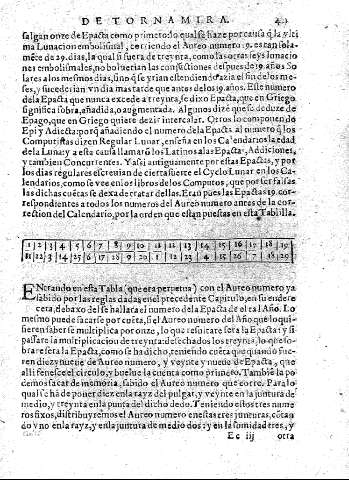 DE TORNAMIRA. 43
salgan onze de Epacta como primero do qual se haze por causa q̃ la vltima
Lunacion embolismal, corriendo el Aureo numero 19. es tan solamẽ
te de 29. dias, la qual si fuera de treynta, como las otras seys lunacio
nes embolismales, no boluerian las conjunciones despues de 19. años So
lares a los mesmos dias, sino q̃ se yrian estendiendo azia el fin de los me-
ses, y sucederian vn dia mas tarde que antes de los 19. años. Este numero
de la Epacta que nunca excede a treynta, se dixo Epacta, que en Griego
significa sobra, añadida, o augmentada. Algunos dizẽ que se deduze de
Epago, que en Griego quiere dezir intercalar. Otros lo componen de
Epi y Adicta: por q̃ añadiendo el numero de la Epacta al numero q̃ los
Computistas dizen Regular Lunar, enseña en los Calendarios la edad
de la Luna: y a esta causa llamarõ los Latinos a las Epactas, Addiciones,
y tambien Concurrentes. Y assi antiguamente por estas Epactas, y por
los dias regulares escreuian de cierta suerte el Cyclo Lunar en los Ca-
lendarios, como se vee en los libros de los Computos, que por ser falsas
las dichas cuẽtas se dexa de tratar dellas. Eran pues las Epactas 19. cor-
respondientes a todos los numeros del Aureo numero antes de la cor-
rection del Calendario, por la orden que estan puestas en esta Tablilla.
1 | 2 | 3 | 4 | 5 | 6 | 7 | 8 | 9 | 10 | 11 | 12 | 13 | 14 | 15 | 16 | 17 | 18 | 19
11 | 22 | 3 | 14 | 25 | 6 | 17 | 28 | 9 | 20 | 1 | 12 | 23 | 4 | 15 | 26 | 7 | 18 | 29
ENtrando en esta Tabla (que era perpetua) con el Aureo numero ya
sabido por las reglas dadas en el precedente Capitulo, en su ende re
cera, debaxo del se hallara el numero de la Epacta de el tal Año. Lo
mesmo puede sacarse por cuẽta, si el Aureo numero del Año que lo qui-
sieren saber se multiplica por onze, lo que resultare sera la Epacta: y si
passare la multiplicacion de treynta: desechados los treynta, lo que so-
brare sera la Epacta, como se ha dicho, teniendo cuẽta que quando fue-
ren diez y nueue de Aureo numero, y veynte y nueue de Epacta, que
alli fenesce el circulo, y buelue la cuenta como primero. Tambiẽ la po
demos sacar de memoria, sabido el Aureo numero que corre. Para lo
qual se ha de poner diez en la rayz del pulgar, y veynte en la juntura de
medio, y treynta en la punta del dicho dedo. Teniendo estos tres nume
ros fixos, distribuyremos el Aureo numero en estas tres junturas, cõtan
do vno en la rayz, y en la juntura de medio dos: y en la sumidad tres, y
Ee iij otra